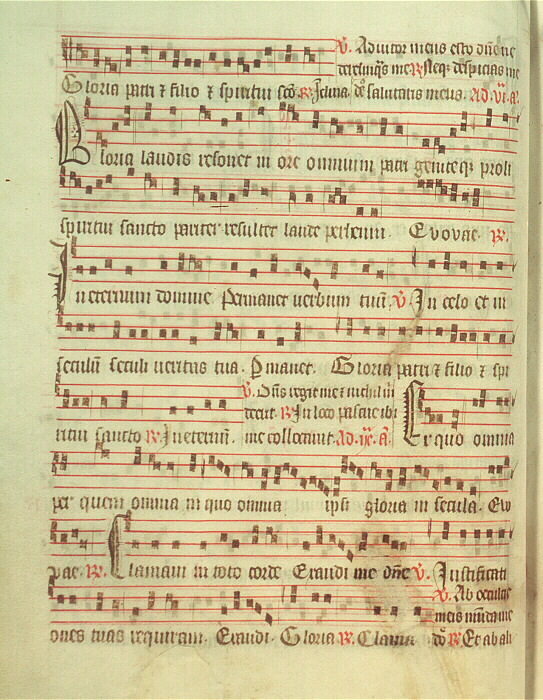 ℣. Adiutor meus esto dñe ne
derelinq̃s me ℟ Neq; despicias me
Gloria patri ⁊ filio ⁊ spiritui scõ. ℟ Inclina. dẽ salutaris meus. Ad. vi. a.
Gloria laudis resonet in ore omnium patri geniteq; proli
spiritui sancto pariter resultet laude perhenni. Evovae. ℟.
In eternum domine. Permanet verbum tuũ. ℣. In celo et in
seculũ seculi veritas tua. Pmanet. Gloria patri ⁊ filio ⁊ spi
℣. Dñs regit me ⁊ nichil m
deerit. ℟ In loco pascue ibi
ritui sancto ℟. In eternũ. me collocavit. Ad. ix. a. Ex quo omnia
per quem omnia in quo omnia ipsi gloria in secula. Evo
vae. ℟. Clamavi in toto corde Exaudi me dñe ℣. Iustificati
℣. Ab occultis
meis munda me
ones tuas requiram. Exaudi. Gloria ℟. Clama dõ ℟ Et ab ali